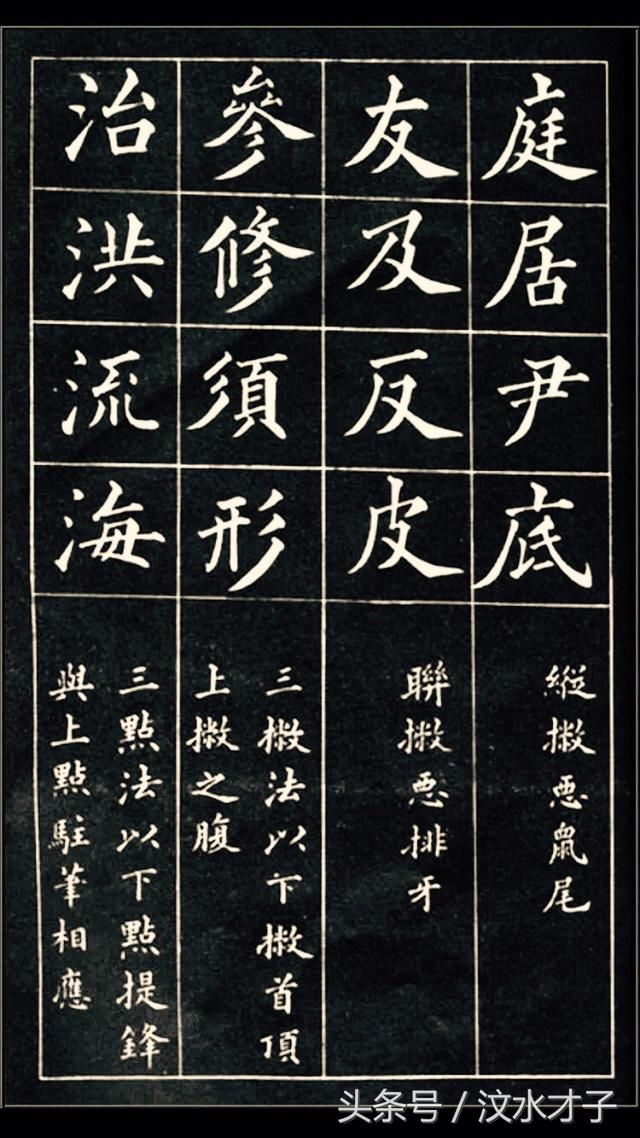 庭居尹底
縱撇惡鼠尾
友及反皮
聯撇惡排牙
參修須形
三撇法以下撇首頂
上撇之腹
治洪流海
三點法以下點提鋒
與上點駐筆相應
头条号 / 汶水才子